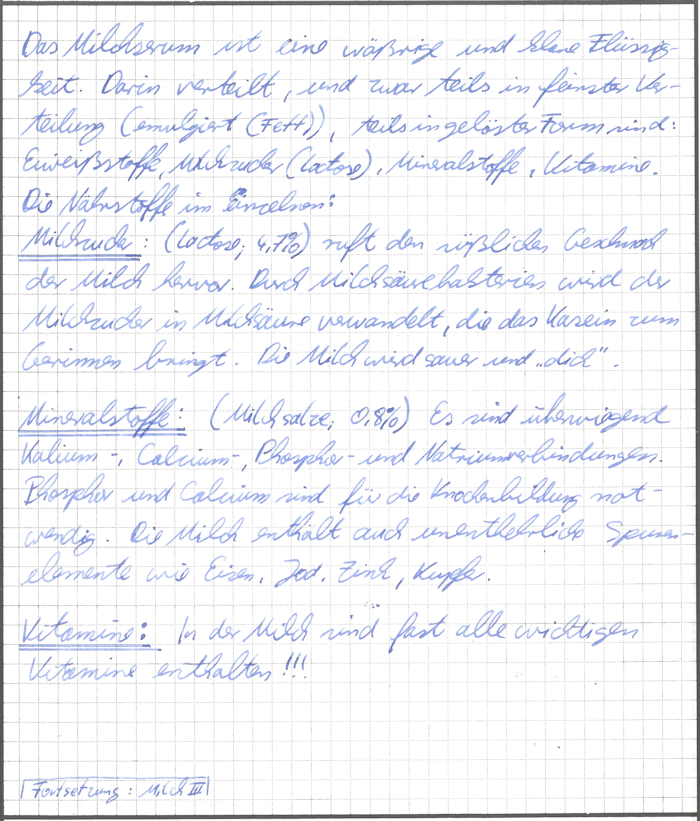 Das Milchserum ist eine wäßrige und klare Flüssig-
keit. Darin verteilt, und zwar teils in feinster Ver-
teilung (emulgiert (Fett)), teils in gelöster Form sind:
Eiweißstoffe, Milchzucker (Lactose), Mineralstoffe, Vitamine.
Die Nährstoffe im einzelnen:
Milchzucker: (Lactose; 4,7%) ruft den süßlichen Geschmack
der Milch hervor. Durch Milchsäurebakterien wird der
Milchzucker in Milchsäure verwandelt, die das Kasein zum
Gerinnen bringt. Die Milch wird sauer und „dick".
Mineralstoffe: (Milchsalze; 0,8%) Es sind überwiegend
Kalium-, Calcium-, Phosphor- und Natriumverbindungen.
Phosphor und Calcium sind für die Knochenbildung not-
wendig. Die Milch enthält auch unentbehrliche Spuren-
elemente wie Eisen, Jod, Zink, Kupfer.
Vitamine: In der Milch sind fast alle wichtigen
Vitamine enthalten!!!
Fortsetzung: Milch III